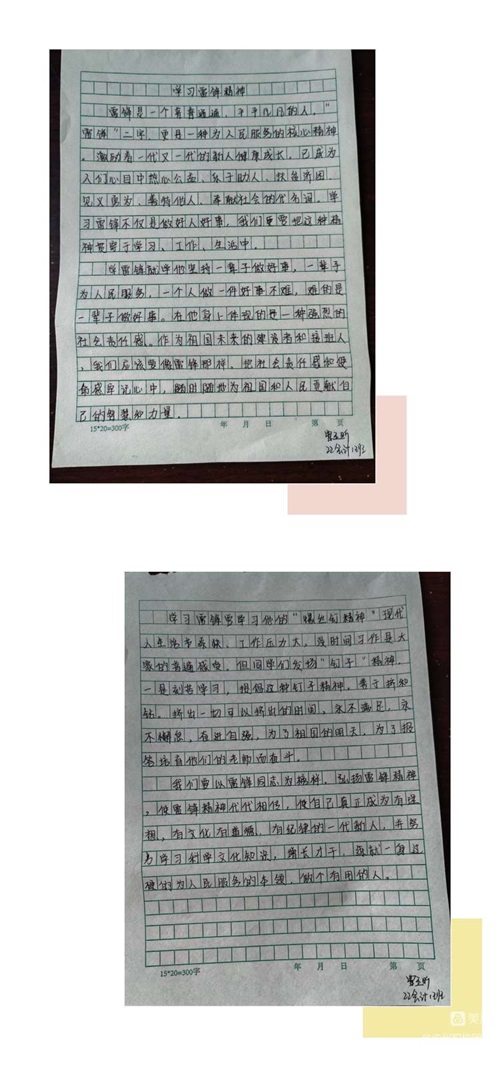 学习雷锋精神
雷锋是一个普普通通、平平凡凡的人。“
雷锋”二字，更是一种为人民服务的核心精神
，激励着一代又一代的新人健康成长，已成为
人们心目中热心公益，乐于助人，扶贫济困，
见义勇为，善待他人，奉献社会的代名词。学
习雷锋不仅是做好人好事，我们更要把这种精
神贯穿于学习、工作、生活中。
学雷锋就学他坚持一辈子做好事，一辈子
为人民服务，一个人做一件好事不难，难的是
一辈子做好事。在他身上体现的是一种强烈的
社会责任感。作为祖国未来的建设者和接班人
，我们应该要像雷锋那样，把社会责任感和使
命感牢记心中，随时随地为祖国和人民贡献自
己的智慧和力量。
15*20=300字 年 月 日 第 页
22会计1班
学习雷锋要学习他的“螺丝钉精神”现代
人生活节奏快、工作压力大，没时间习作是大
家的普遍感受。但同学们发扬“钉子”精神，
一是刻苦学习，提倡这种钉子精神，善于挤和
钻，挤出一切可以挤出的时间，永不满足，永
不懈怠，奋进自强，为了祖国的明天，为了报
答培育他们的老师而奋斗。
我们要以雷锋同志为榜样，弘扬雷锋精神
，使雷锋精神代代相传，使自己真正成为有理
想、有文化有道德、有纪律的一代新人，并努
力学习科学文化知识，增长才干，练就一身过
硬的为人民服务的本领，做个有用的人。
15*20=300字 年 月 日 第 页
22会计1班